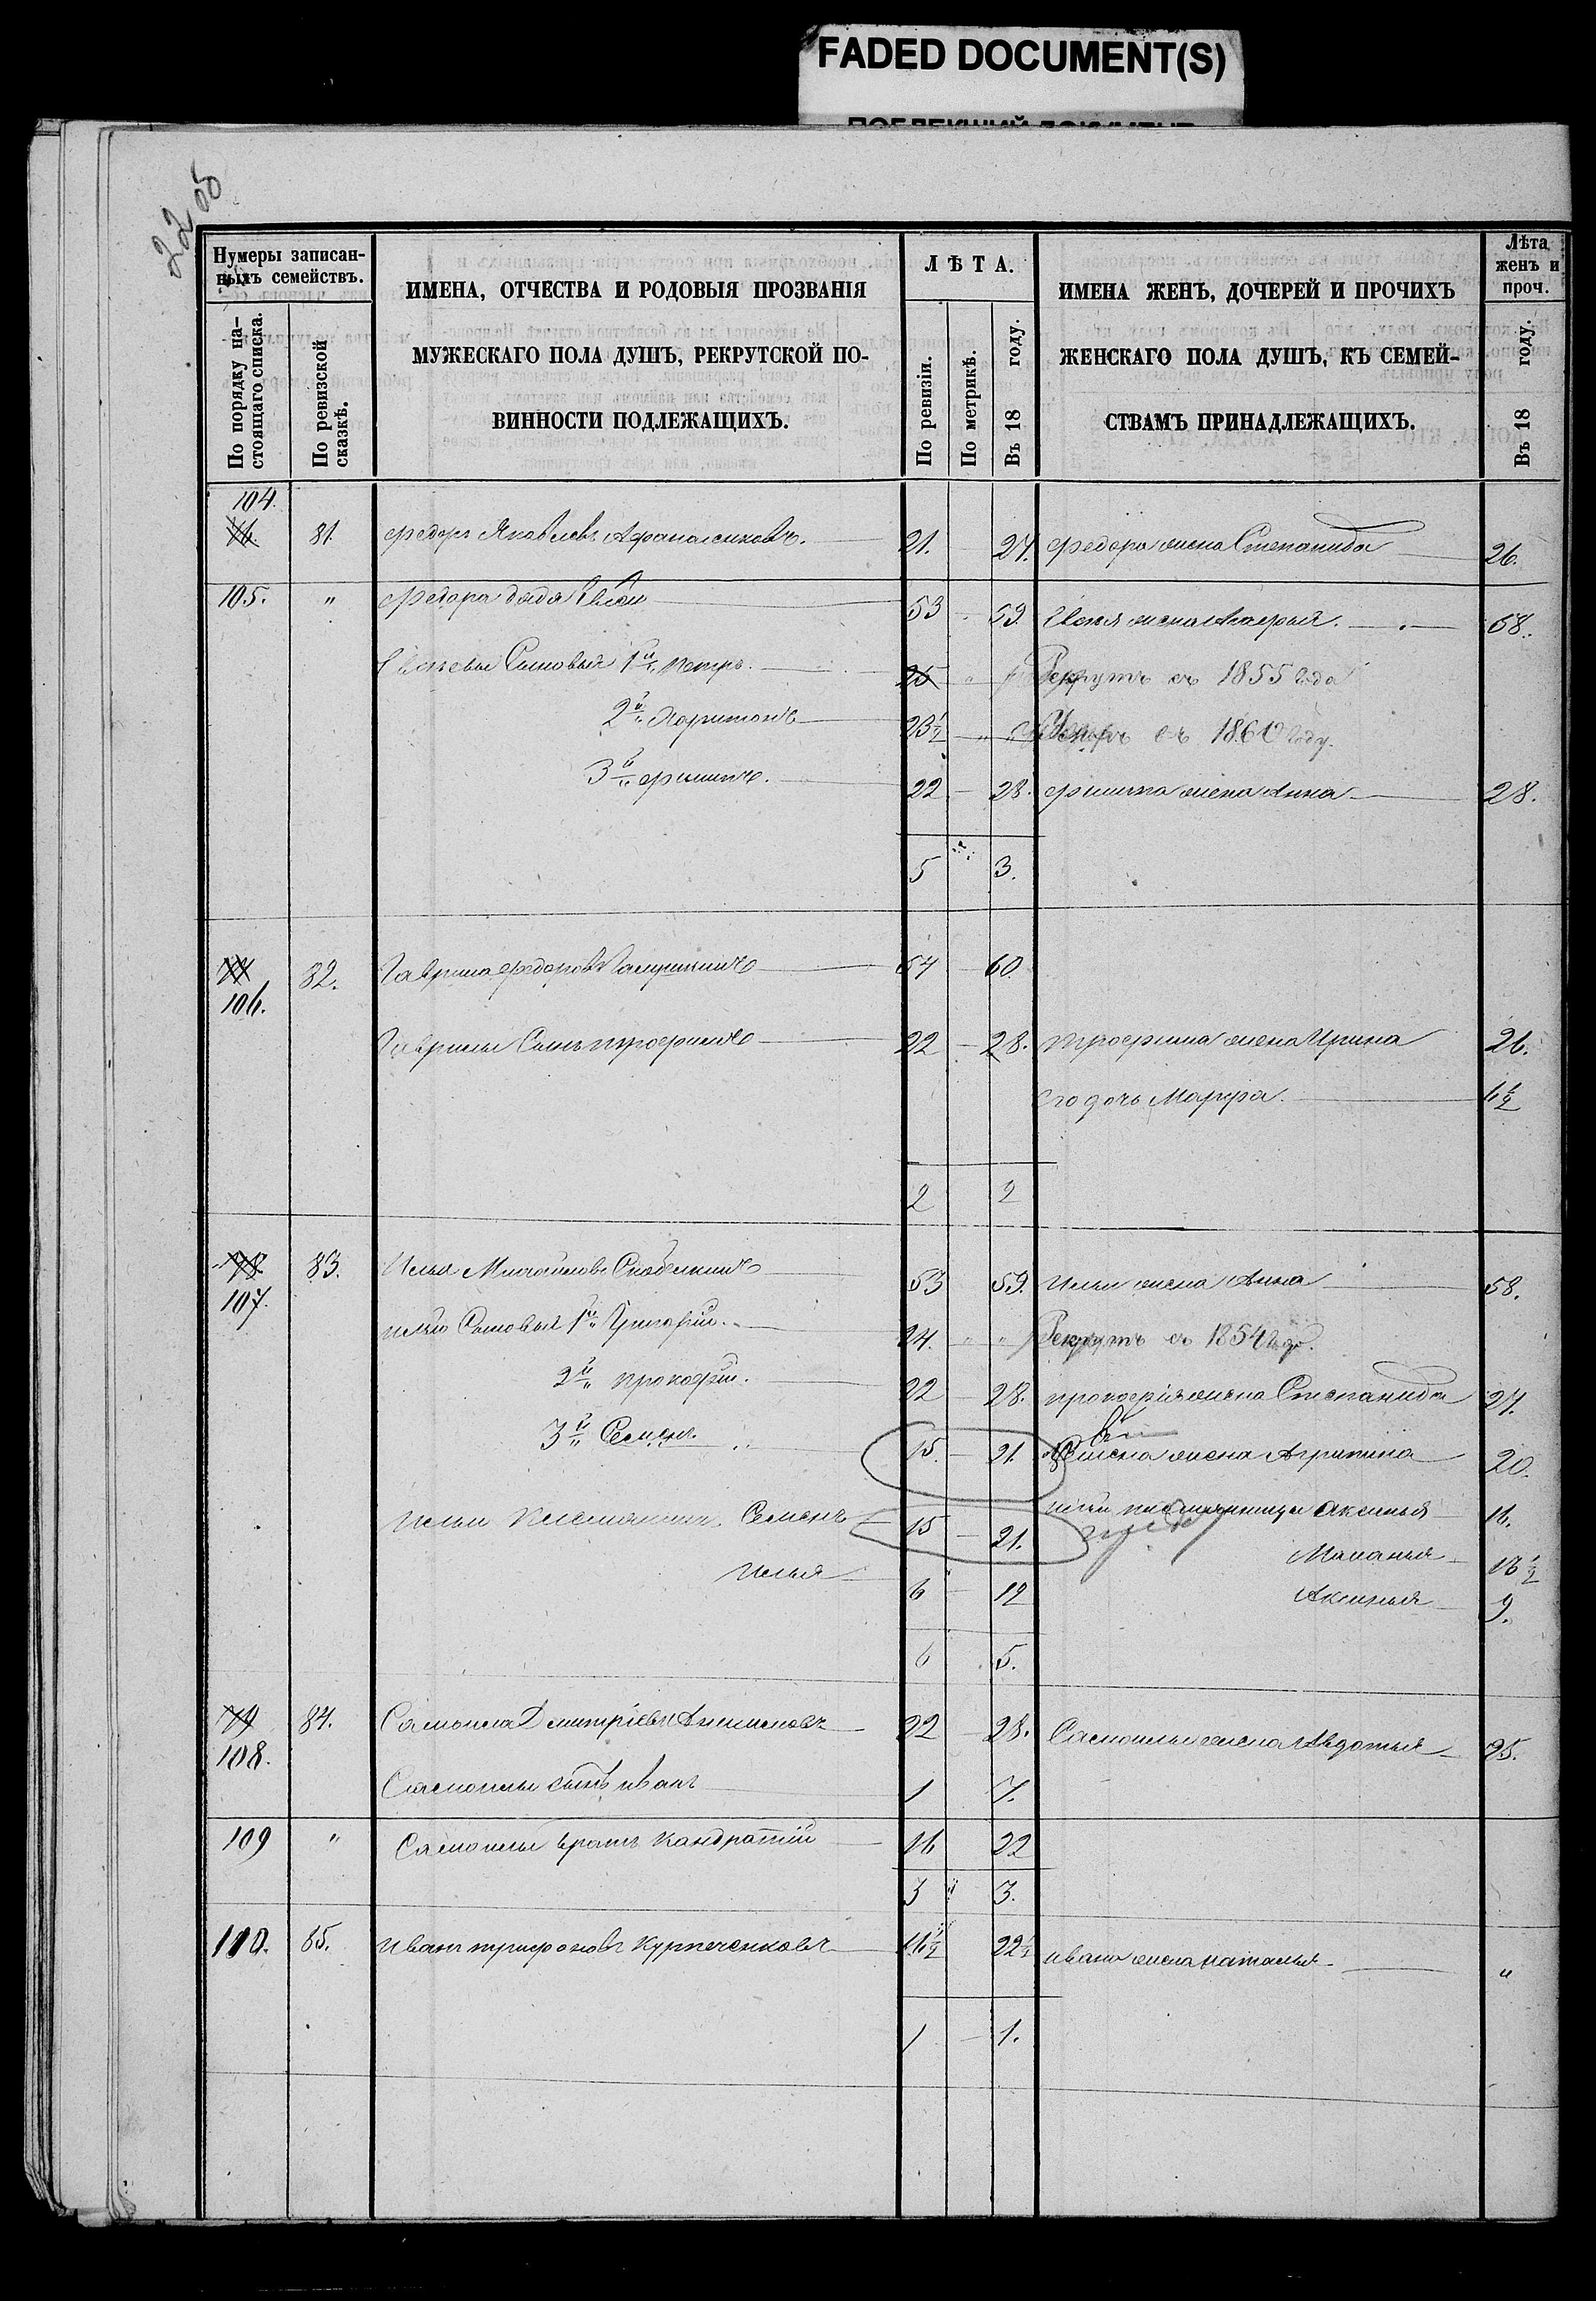 FADED DOCUMENT(S)
22 об
Нумеры записан-
ныхъ семействъ.
По порядку на-
стоящаго списка.
По ревизской
сказкѣ.
ИМЕНА, ОТЧЕСТВА И РОДОВЫЯ ПРОЗВАНІЯ
МУЖЕСКАГО ПОЛА ДУШЪ, РЕКРУТСКОЙ ПО-
ВИННОСТИ ПОДЛЕЖАЩИХЪ.
ЛѢТА.
По ревизіи.
По метрикѣ.
Въ 18 году.
ИМЕНА ЖЕНЪ, ДОЧЕРЕЙ И ПРОЧИХЪ
ЖЕНСКАГО ПОЛА ДУШЪ, КЪ СЕМЕЙ-
СТВАМЪ ПРИНАДЛЕЖАЩИХЪ.
Лѣта
женъ и
проч.
Въ 18 году.
104.
81. Федоръ Яковлевъ 21. 27. Федора жена Степанида 26.
105. " Федора дядя 53 59. жена 58.
Сыновья 1й Петръ 25 " Рекрутъ съ 1855 года
2й Харитонъ 23½ " " съ 1860 году.
3й Филипъ. 22 28. Филипа жена Анна 28.
5 3.
82. Гаврила Федоровъ 54 60
106.
Гаврилы Сынъ Трофимъ 22 28. Трофима жена Ирина 26.
его дочь Марфа. 1½
2 2
78. 83. Илья Михайловъ 53 59. Ильи жена Анна 58.
107.
Ильи Сыновья 1й Григорій. 24. " " Рекрутъ съ 1854 года.
2й Прокофій. 22 28. Прокофія жена Степанида 27.
3й Семенъ. 15. 21. Семена жена Агрипина 20.
Ильи племянники Семенъ 15 21. Ильи племянницы Аксинья 16.
Илья 6 12 Маланья
Аксинья 9.
6 5.
79 84. Самоила Дмитріевъ 22 28. Самоилы жена Авдотья 25.
108.
Самоилы сынъ иванъ 1 7.
109 " Самоилы братъ Кандратій 16 22
3 " 3.
110. 85. иванъ трифоновъ Курпеченковъ 16½ 22½ ивана жена наталья "
1 1.